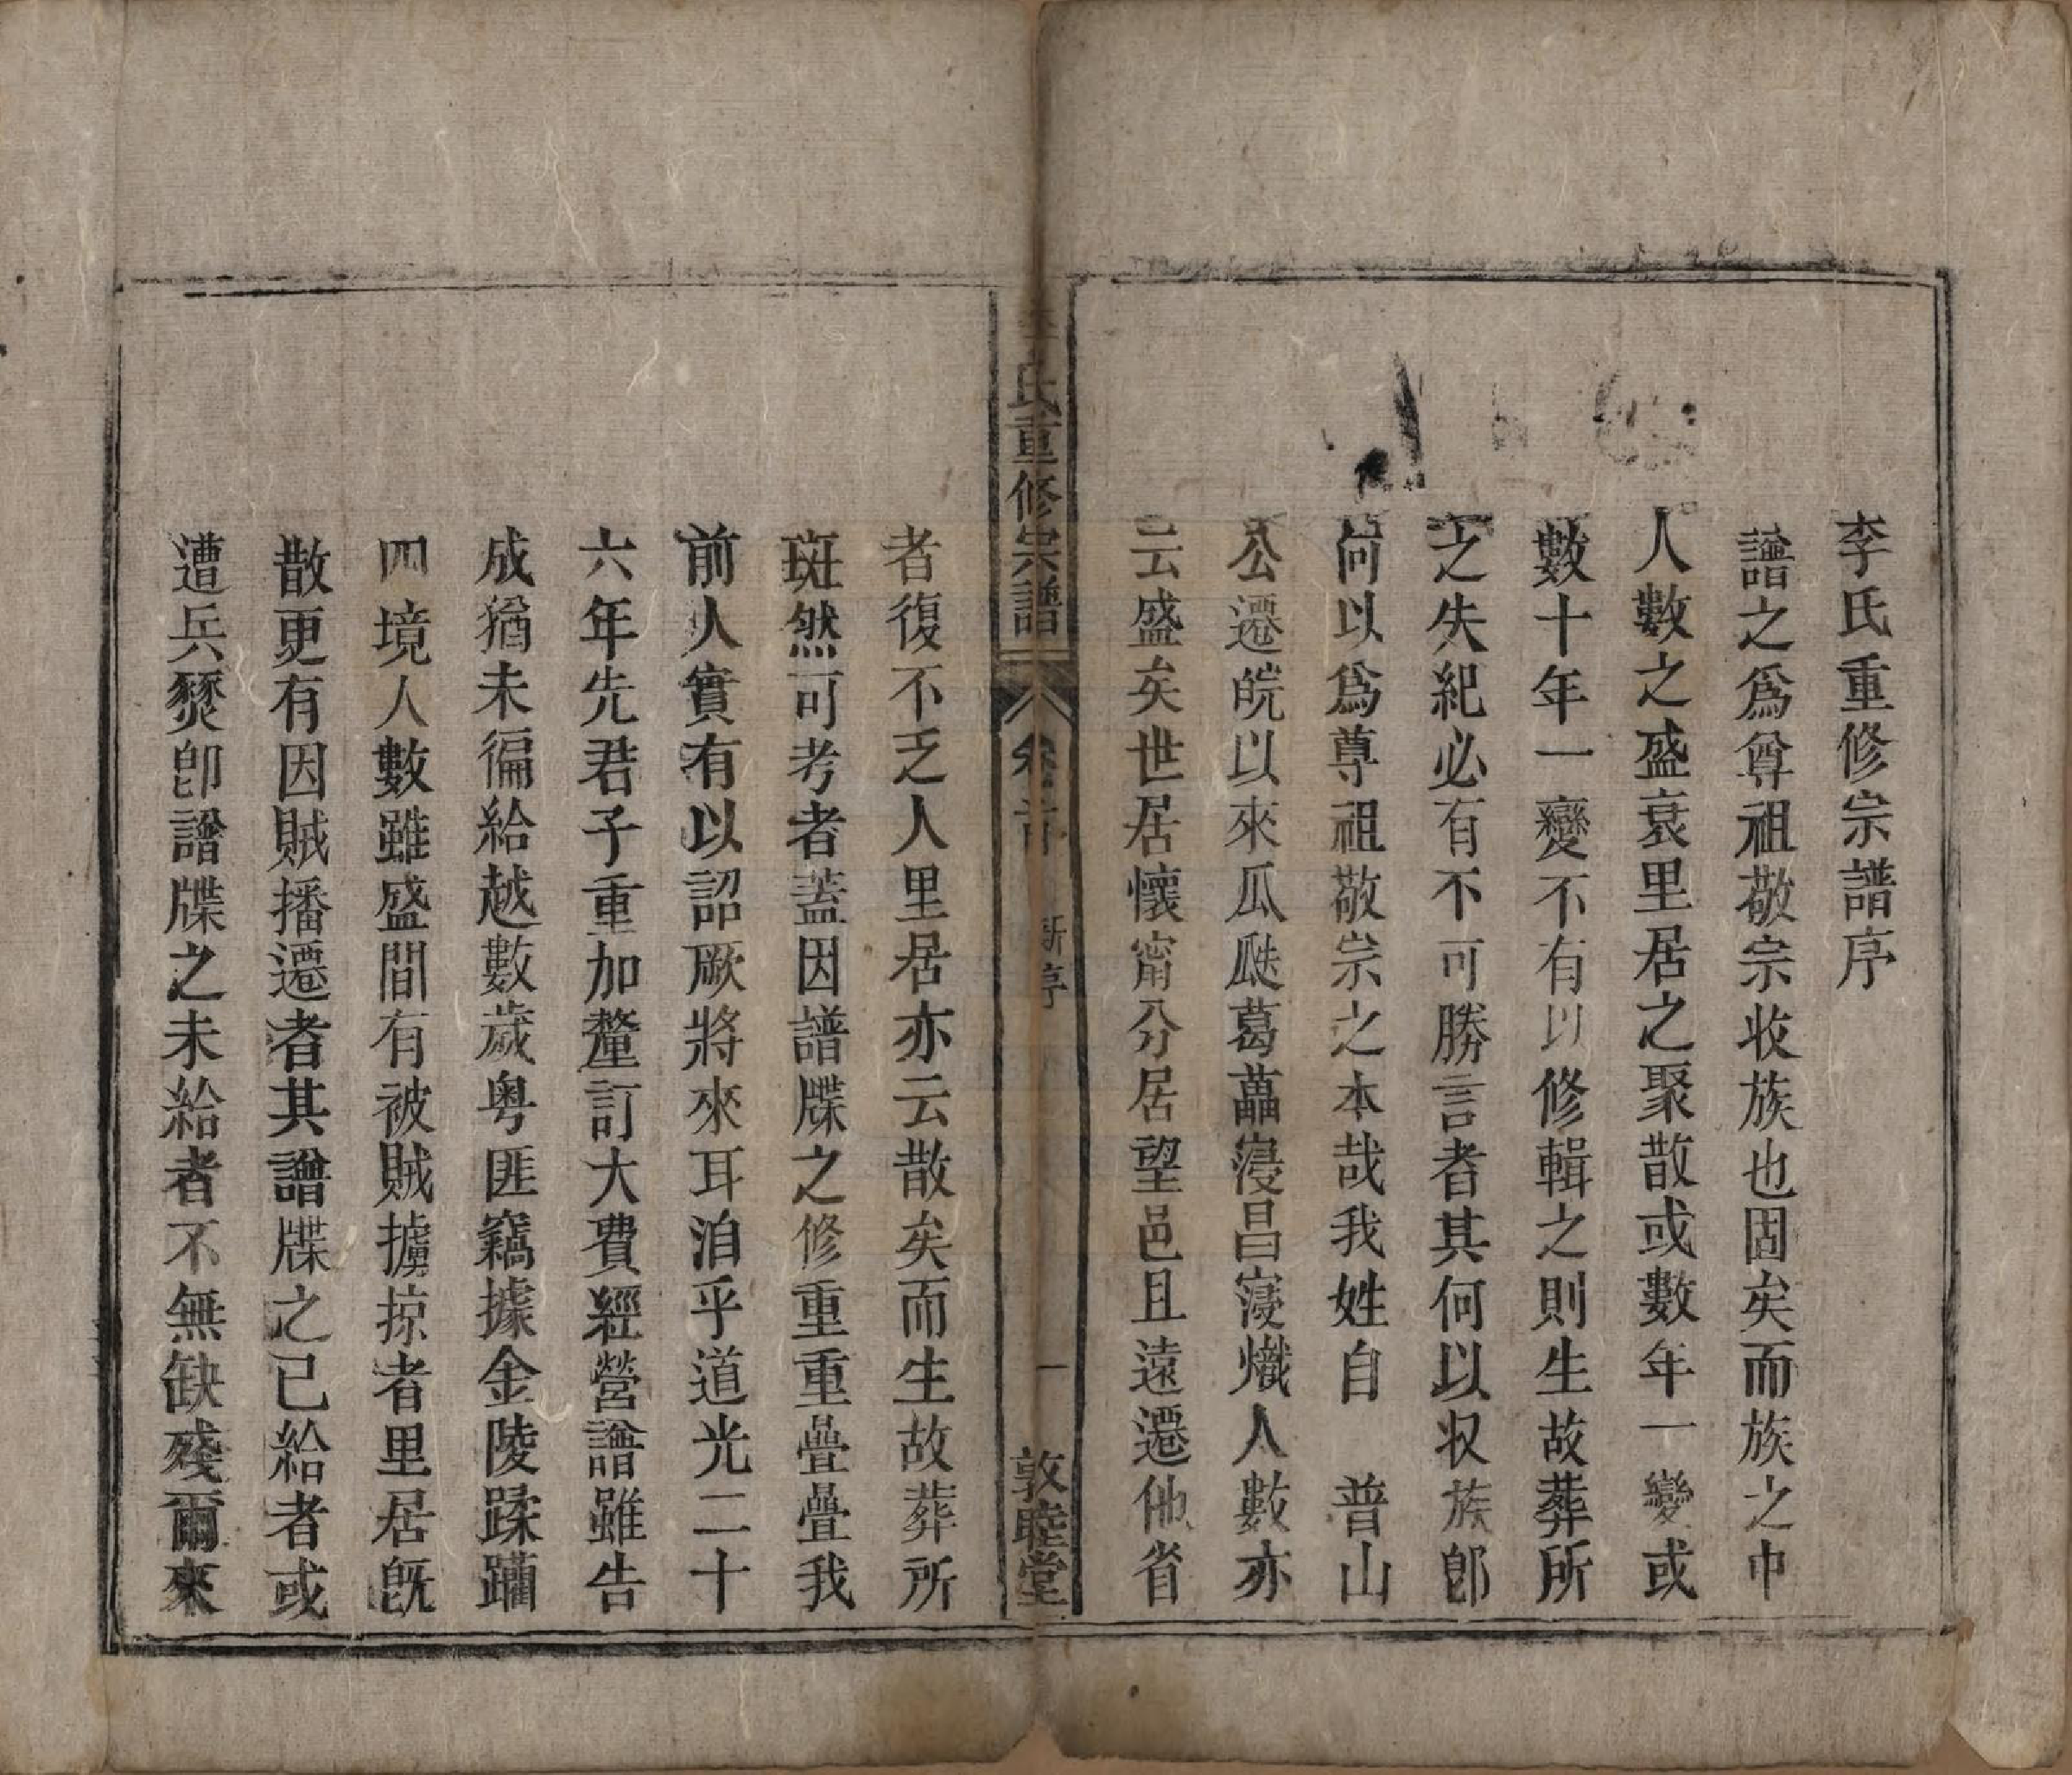 李氏重修宗譜序
譜之爲尊祖敬宗收族也固矣而族之中
人數之盛衰里居之聚散或數年一變或
數十年一變不有以修輯之則生故葬所
之失紀必有不可勝言者其何以収族卽
何以爲尊祖敬宗之本哉我姓自　普山
公遷皖以來瓜瓞葛藟寖昌寖熾人數亦
云盛矣世居懷甯分居望邑且遠遷他省
李氏重修宗譜　卷首　新序　一　敦睦堂
者復不乏人里居亦云散矣而生故葬所
斑然可考者蓋因譜牒之修重重疊疊我
前人實有以詔厥將來耳洎乎道光二十
六年先君子重加釐訂大費經營譜雖告
成猶未徧給越數歲粤匪竊據金陵蹂躪
四境人數雖盛間有被賊擄掠者里居旣
散更有因賊播遷者其譜牒之已給者或
遭兵燹卽譜牒之未給者不無缺殘爾來